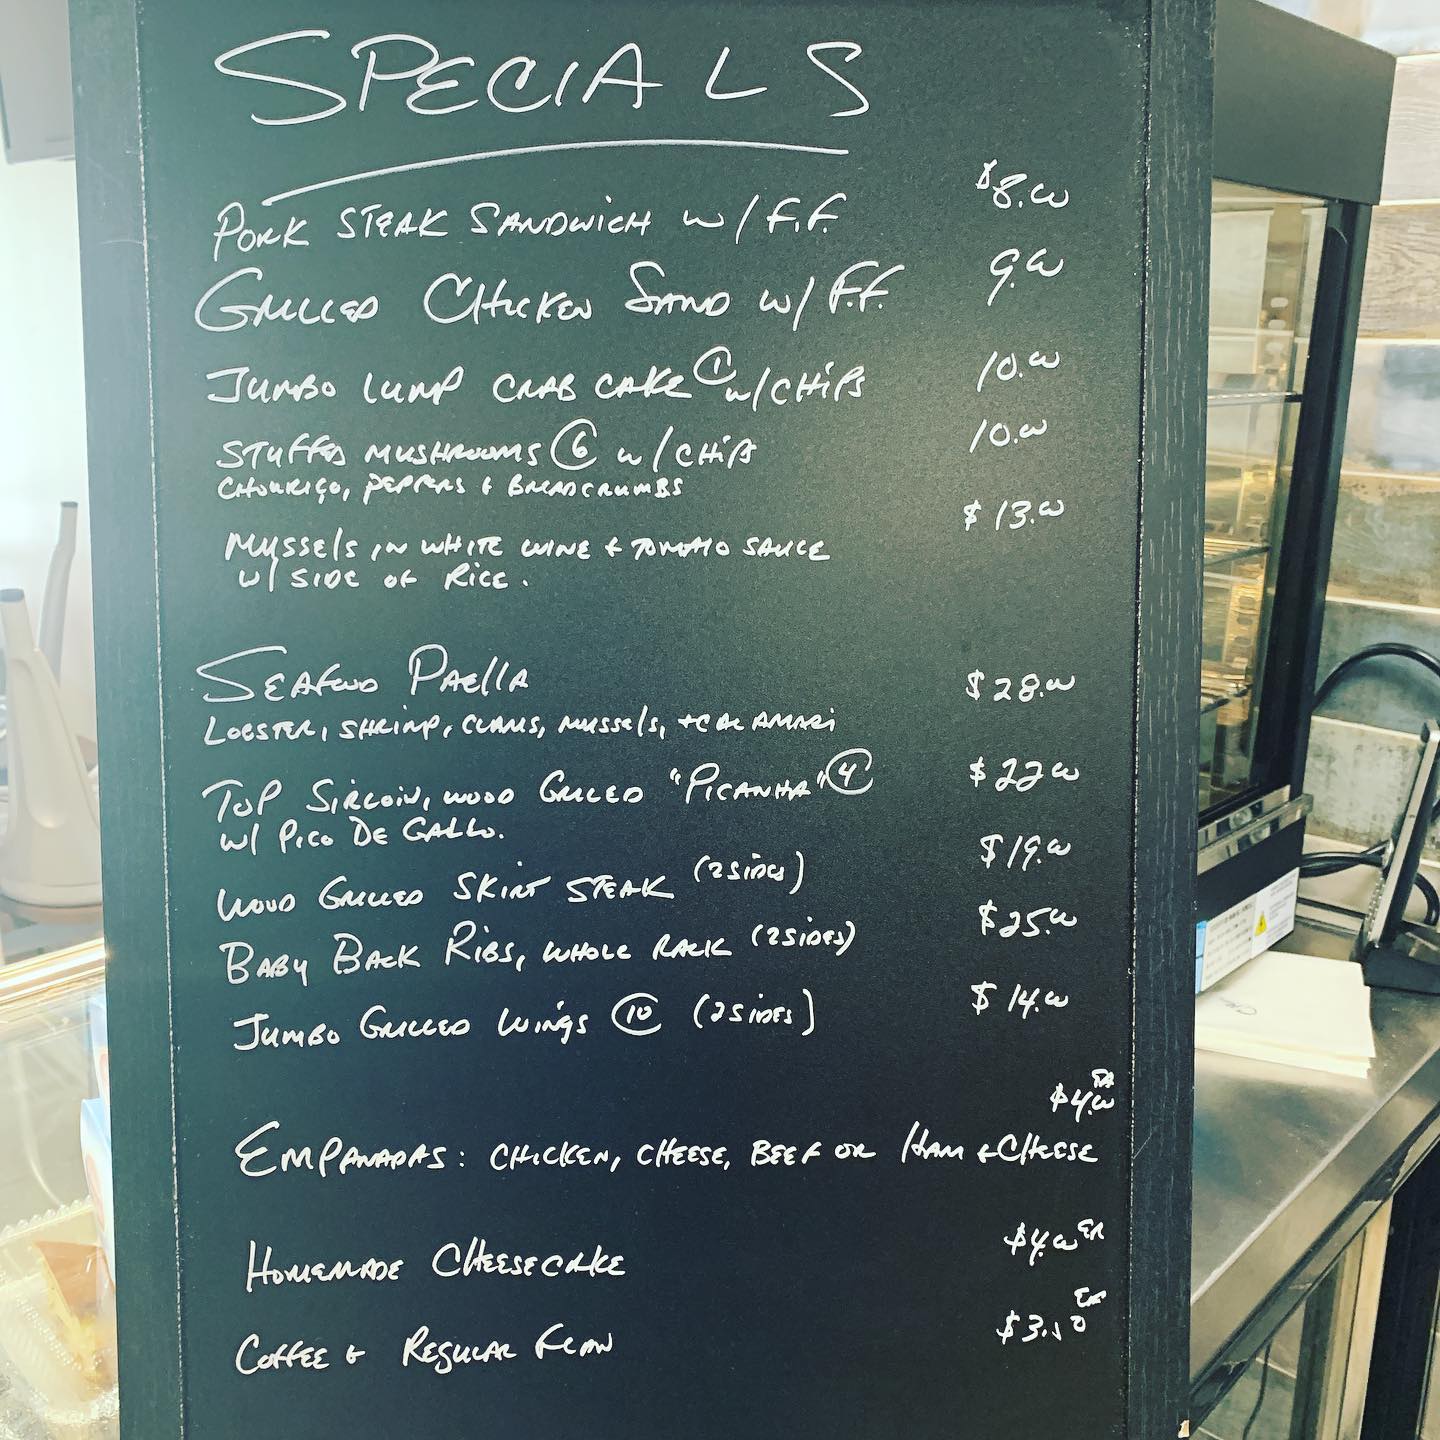 SPECIALS
PORK STEAK SANDWICH w/ F.F. $8.00
GRILLED CHICKEN SAND w/ F.F. 9.00
JUMBO LUMP CRAB CAKE 1 w/ CHIPS 10.00
STUFFED MUSHROOMS 6 w/ CHIPS 10.00
CHOURIÇO, PEPPERS & BREADCRUMBS
MUSSELS IN WHITE WINE & TOMATO SAUCE $13.00
w/ SIDE OF RICE.
SEAFOOD PAELLA $28.00
LOBSTER, SHRIMP, CLAMS, MUSSELS, & CALAMARI
TOP SIRLOIN, WOOD GRILLED "PICANHA" 4 $22.00
w/ PICO DE GALLO.
WOOD GRILLED SKIRT STEAK (2 SIDES) $19.00
BABY BACK RIBS, WHOLE RACK (2 SIDES) $25.00
JUMBO GRILLED WINGS 10 (2 SIDES) $14.00
$4.00 EA
EMPANADAS: CHICKEN, CHEESE, BEEF OR HAM & CHEESE
HOMEMADE CHEESECAKE $4.00 EA
COFFEE & REGULAR FLAN $3.50 EA